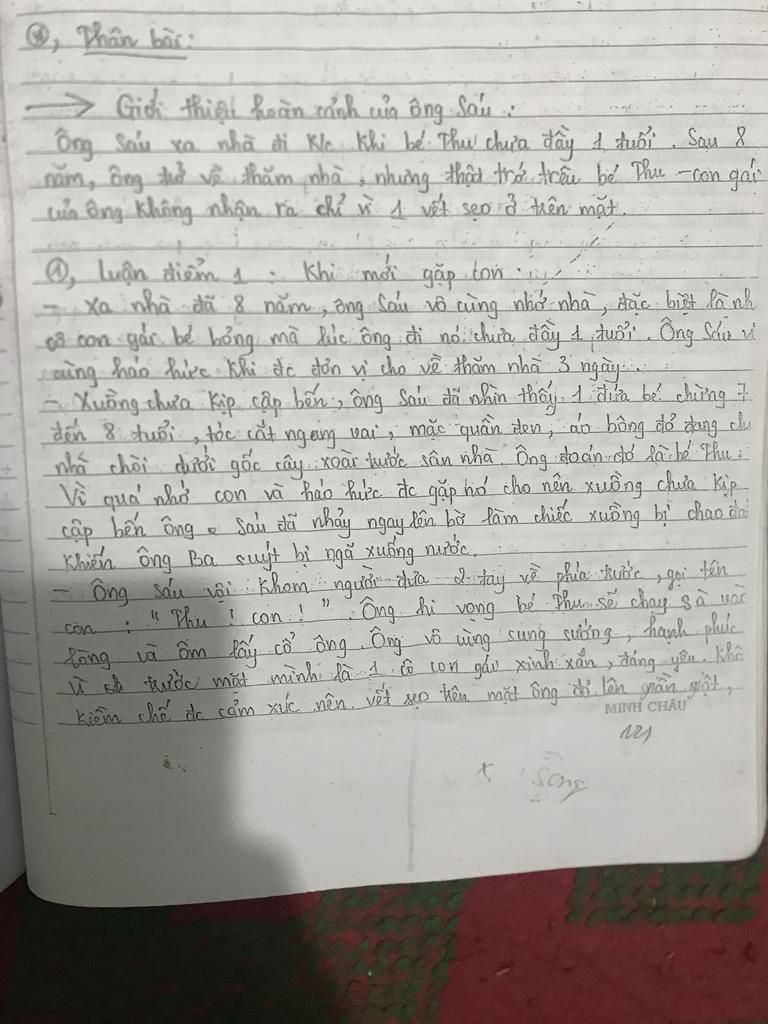 *, Thân bài:
→ Giới thiệu hoàn cảnh của ông Sáu:
Ông Sáu xa nhà đi K/c khi bé Thu chưa đầy 1 tuổi. Sau 8
năm, ông trở về thăm nhà, nhưng thật trớ trêu bé Thu - con gái
của ông không nhận ra chỉ vì 1 vết sẹo ở trên mặt.
①, Luận điểm 1: Khi mới gặp con:
- Xa nhà đã 8 năm, ông Sáu vô cùng nhớ nhà, đặc biệt là nh
cô con gái bé bỏng mà lúc ông đi nó chưa đầy 1 tuổi. Ông Sáu v
cùng háo hức khi đc đơn vị cho về thăm nhà 3 ngày.
- Xuồng chưa kịp cập bến, ông Sáu đã nhìn thấy 1 đứa bé chừng 7
đến 8 tuổi, tóc cắt ngang vai, mặc quần đen, áo bông đỏ đang ch
nhà chòi dưới gốc cây xoài trước sân nhà. Ông đoán đó là bé Thu.
Vì quá nhớ con và háo hức đc gặp nó cho nên xuồng chưa kịp
cập bến ông Sáu đã nhảy ngay lên bờ làm chiếc xuồng bị chao đả
khiến ông Ba suýt bị ngã xuống nước.
- Ông Sáu vội khom người đưa 2 tay về phía trước, gọi tên
con: "Thu! con!". Ông hi vọng bé Thu sẽ chạy sà vào
lòng và ôm lấy cổ ông. Ông vô cùng sung sướng, hạnh phúc
vì trước mặt mình là 1 cô con gái xinh xắn, đáng yêu. Khô
kiềm chế đc cảm xúc nên vết sẹo trên mặt ông đỏ lên giần giật,
MINH CHÂU
121
x
Sông